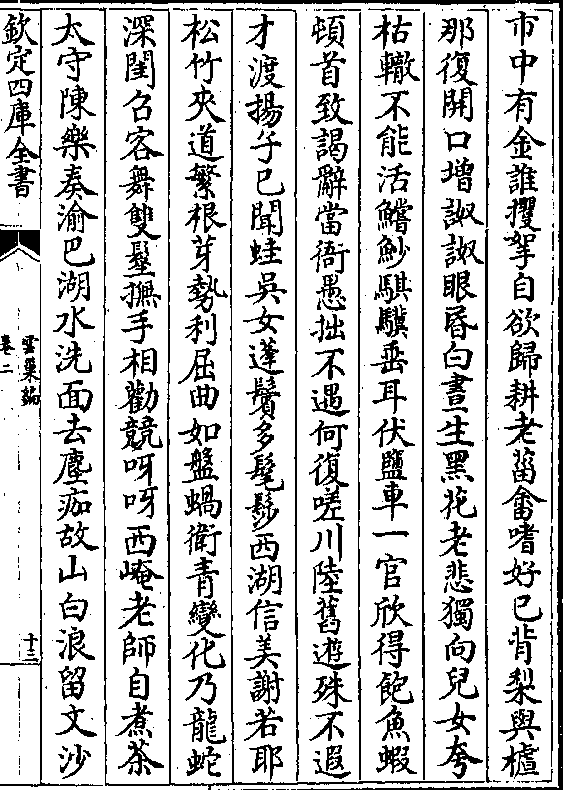 市中有金誰攫拏自欲歸耕老菑畬嗜好已背梨與樝
那復開口增詉詉眼昏白晝生黑花老悲獨向兒女夸
枯轍不能活鱨魦騏驥垂耳伏鹽車一官欣得飽魚蝦
頓首致謁辭當衙愚拙不遇何復嗟川陸舊遊殊不遐
才渡揚子已聞蛙吳女蓬鬢多髦髿西湖信美謝若耶
松竹夾道繁根芽勢利屈曲如盤蝸衛青變化乃龍蛇
深閨召客舞雙鬟撫手相勸競呀呀西崦老師自煮茶
太守陳樂奏渝巴湖水洗面去塵痂故山白浪留文沙
欽定四庫全書
雲巢編
卷二
十三